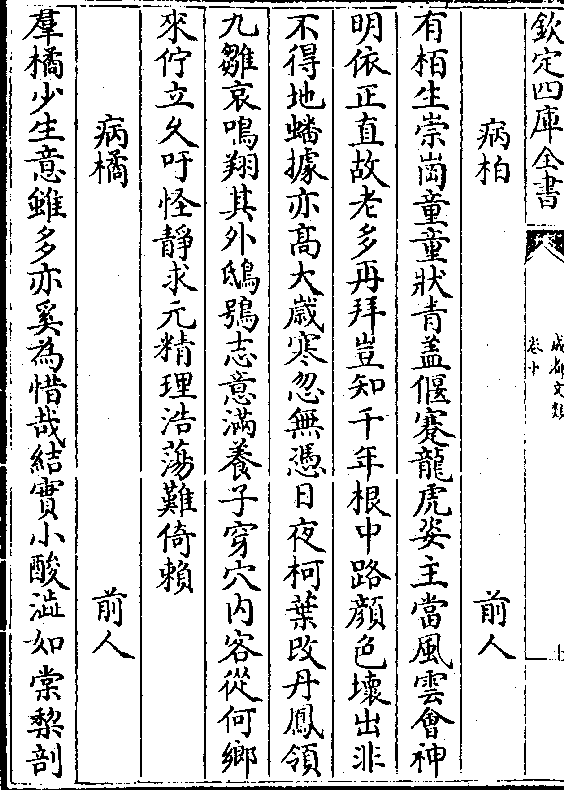 欽定四庫全書
成都文類
卷十
病柏 前人
有柏生崇崗童童狀青蓋偃蹇龍虎姿主當風雲會神
明依正直故老多再拜豈知千年根中路顔色壞出非
不得地蟠據亦髙大歲寒忽無憑日夜柯葉改丹鳳領
九雛哀鳴翔其外鴟鴞志意滿養子穿穴内客從何鄉
來佇立乆吁怪靜求元精理浩蕩難倚賴
病橘 前人
羣橘少生意雖多亦奚為惜哉結實小酸澁如棠棃剖